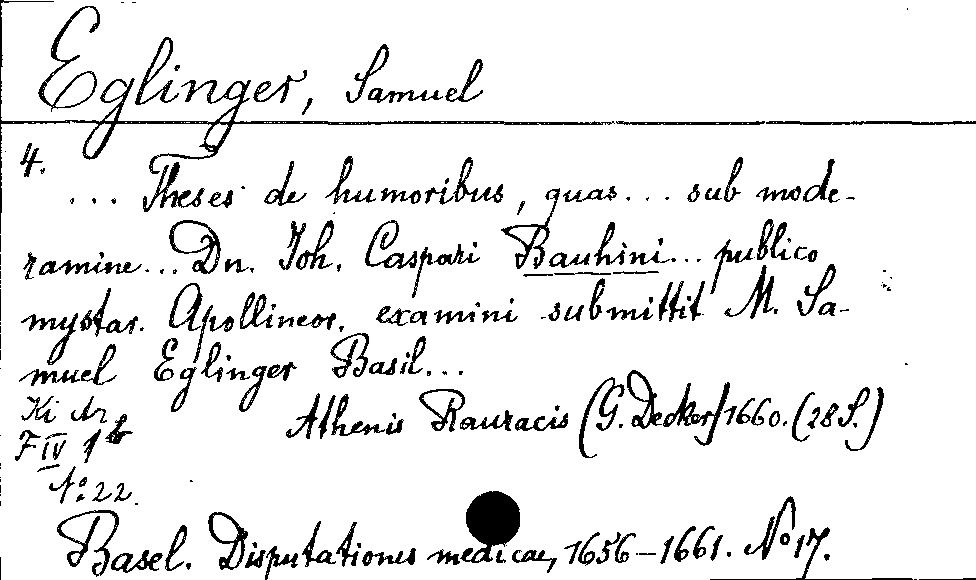 Eglinger, Samuel
4.
... Theses de humoribus, quas... sub mode-
ramine... Dn. Joh. Caspari Bauhini... publico
mystar. Apollineor. examini submittit M. Sa-
muel Eglinger Basil...
Athenis Rauracis (G. Decker) 1660. (28 S.)
Ki Ar
F IV 1b
No 22.
Basel. Disputationes medicae, 1656-1661. No 17.